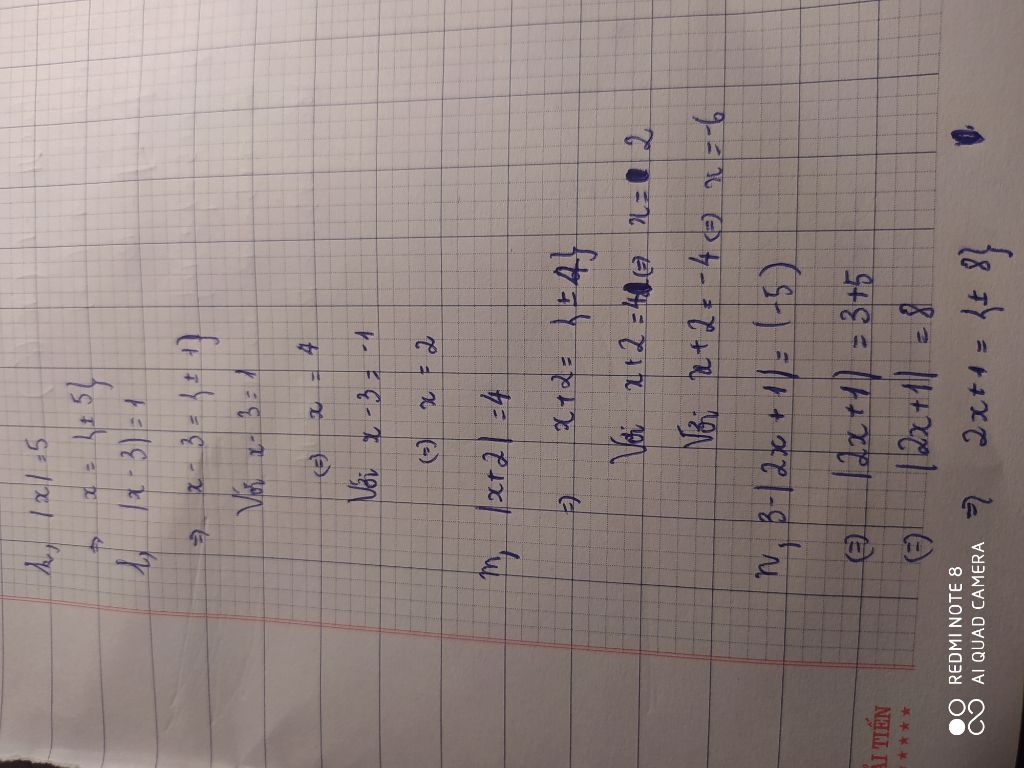 k, |x| = 5
=> x = {± 5}
l, |x - 3| = 1
=> x - 3 = {± 1}
Với x - 3 = 1
(=) x = 4
Với x - 3 = -1
(=) x = 2
m, |x+2| = 4
=> x+2 = {± 4}
Với x + 2 = 4 (=) x = 2
Với x + 2 = -4 (=) x = -6
n, 3 - |2x + 1| = (-5)
(=) |2x + 1| = 3+5
(=) |2x + 1| = 8
=> 2x + 1 = {± 8}
ẢI TIẾN
REDMI NOTE 8
AI QUAD CAMERA